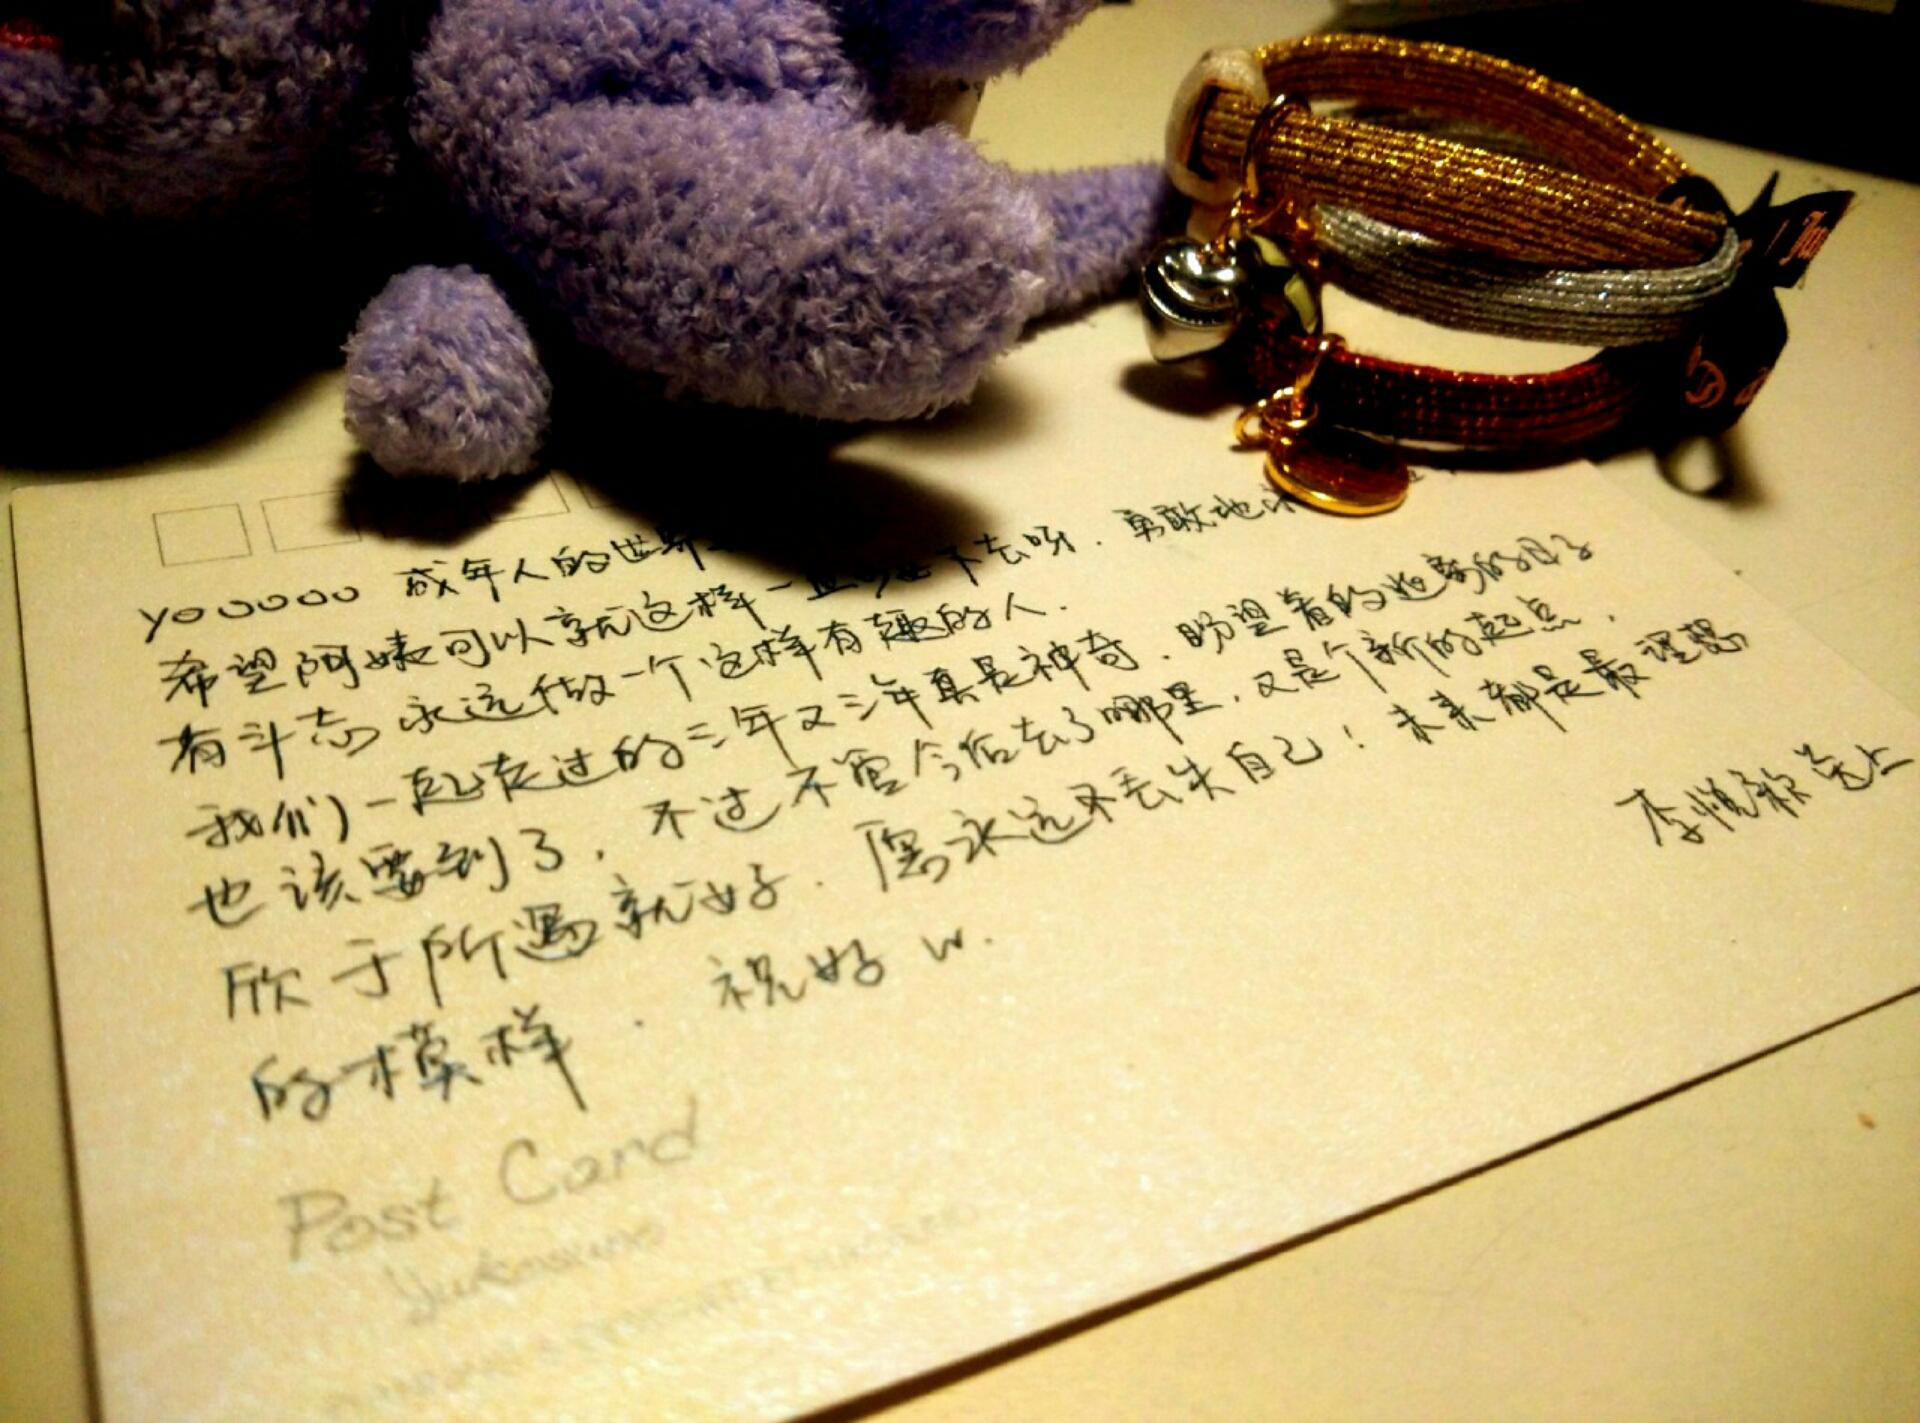 youooo 成年人的世界
希望阿姨可以就这样一直 下去呀．勇敢地
有斗志 永远做一个这样有趣的人．
我们一起走过的三年又三年真是神奇．盼望着的远离的日子
也该要到了．不过不管今后去了哪里，又是个新的起点．
欣于所遇就好．愿永远不丢失自己！未来都是最理想
的模样．祝好 w.
李悦 上
Post Card